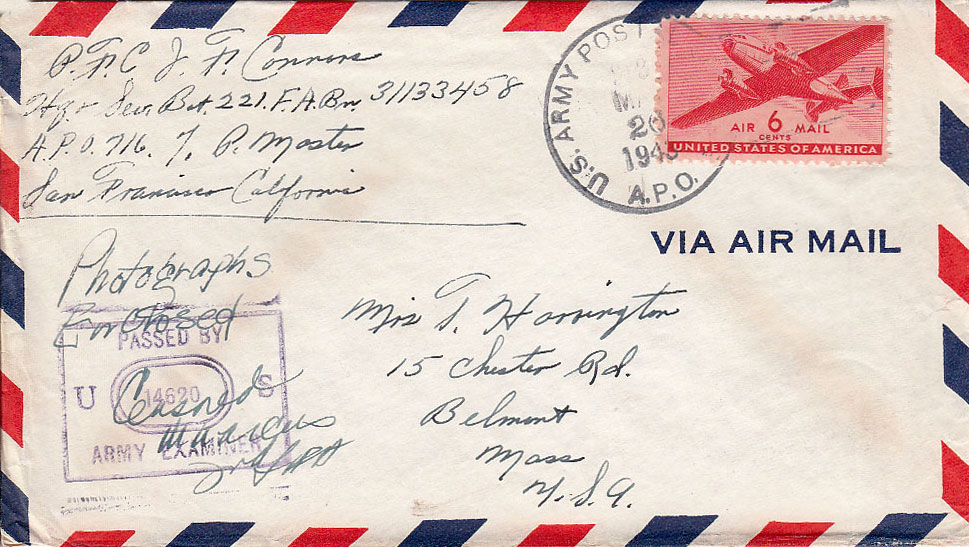 P.F.C J. F. Connors
Hqr Ser. Bat. 221. F.A.Bn. 31133458
A.P.O. 716. % P. Master
San Francisco California
U.S. ARMY POST
20
194
A.P.O.
AIR 6 MAIL
CENTS
UNITED STATES OF AMERICA
VIA AIR MAIL
Photographs
Enclosed
PASSED BY
U 14620 S
ARMY EXAMINER
Censored
T. Harrington
15 Chester Rd.
Belmont
Mass
U.S.A.